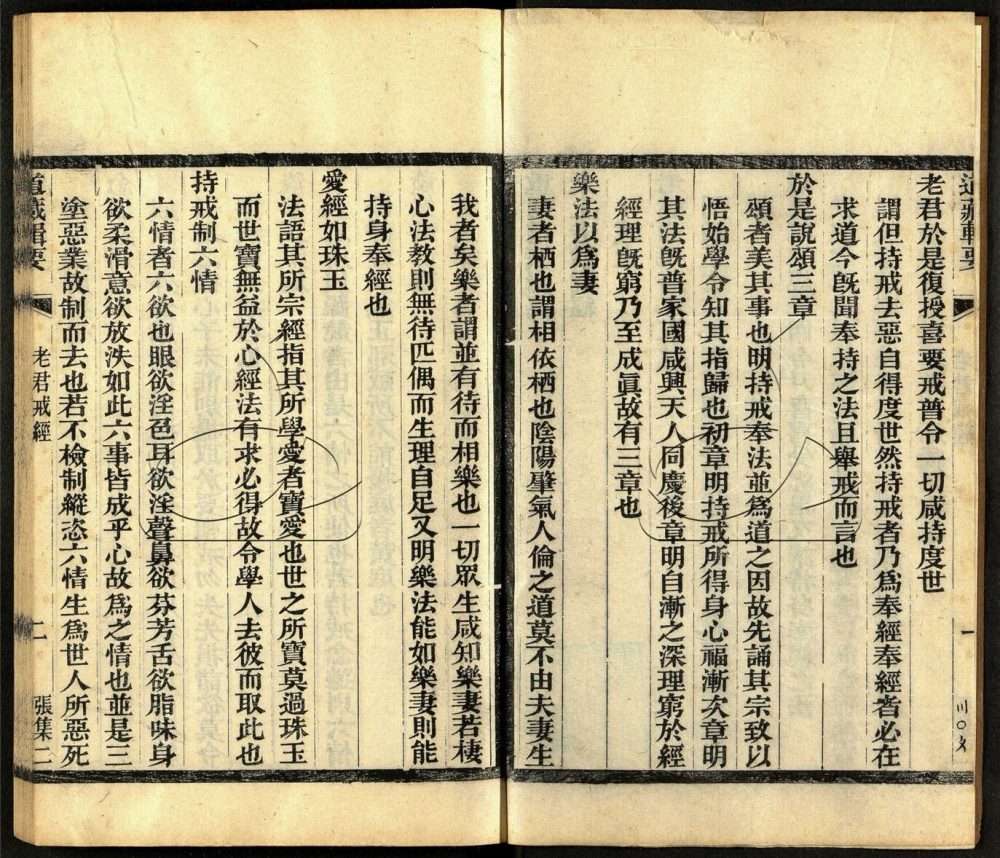 道藏輯要
一
老君於是復授喜要戒普令一切咸持度世
謂但持戒去惡自得度世然持戒者乃爲奉經奉經者必在
求道今旣聞奉持之法且舉戒而言也
於是說頌三章
頌者美其事也明持戒奉法並爲道之因故先誦其宗致以
悟始學令知其指歸也初章明持戒所得身心福漸次章明
其法旣普家國咸興天人同慶後章明自漸之深理窮於經
經理旣窮乃至成眞故有三章也
樂法以爲妻
妻者栖也謂相依栖也陰陽肇氣人倫之道莫不由夫妻生
我者矣樂者謂並有待而相樂也一切眾生咸知樂妻若棲
心法教則無待匹偶而生理自足又明樂法能如樂妻則能
持身奉經也
愛經如珠玉
法語其所宗經指其所學愛者寶愛也世之所寶莫過珠玉
而世寶無益於心經法有求必得故令學人去彼而取此也
持戒制六情
六情者六欲也眼欲淫色耳欲淫聲鼻欲芬芳舌欲脂味身
欲柔滑意欲放泆如此六事皆成乎心故爲之情也並是三
塗惡業故制而去也若不檢制縱恣六情生爲世人所惡死
道藏輯要
老君戒經
二
張集二